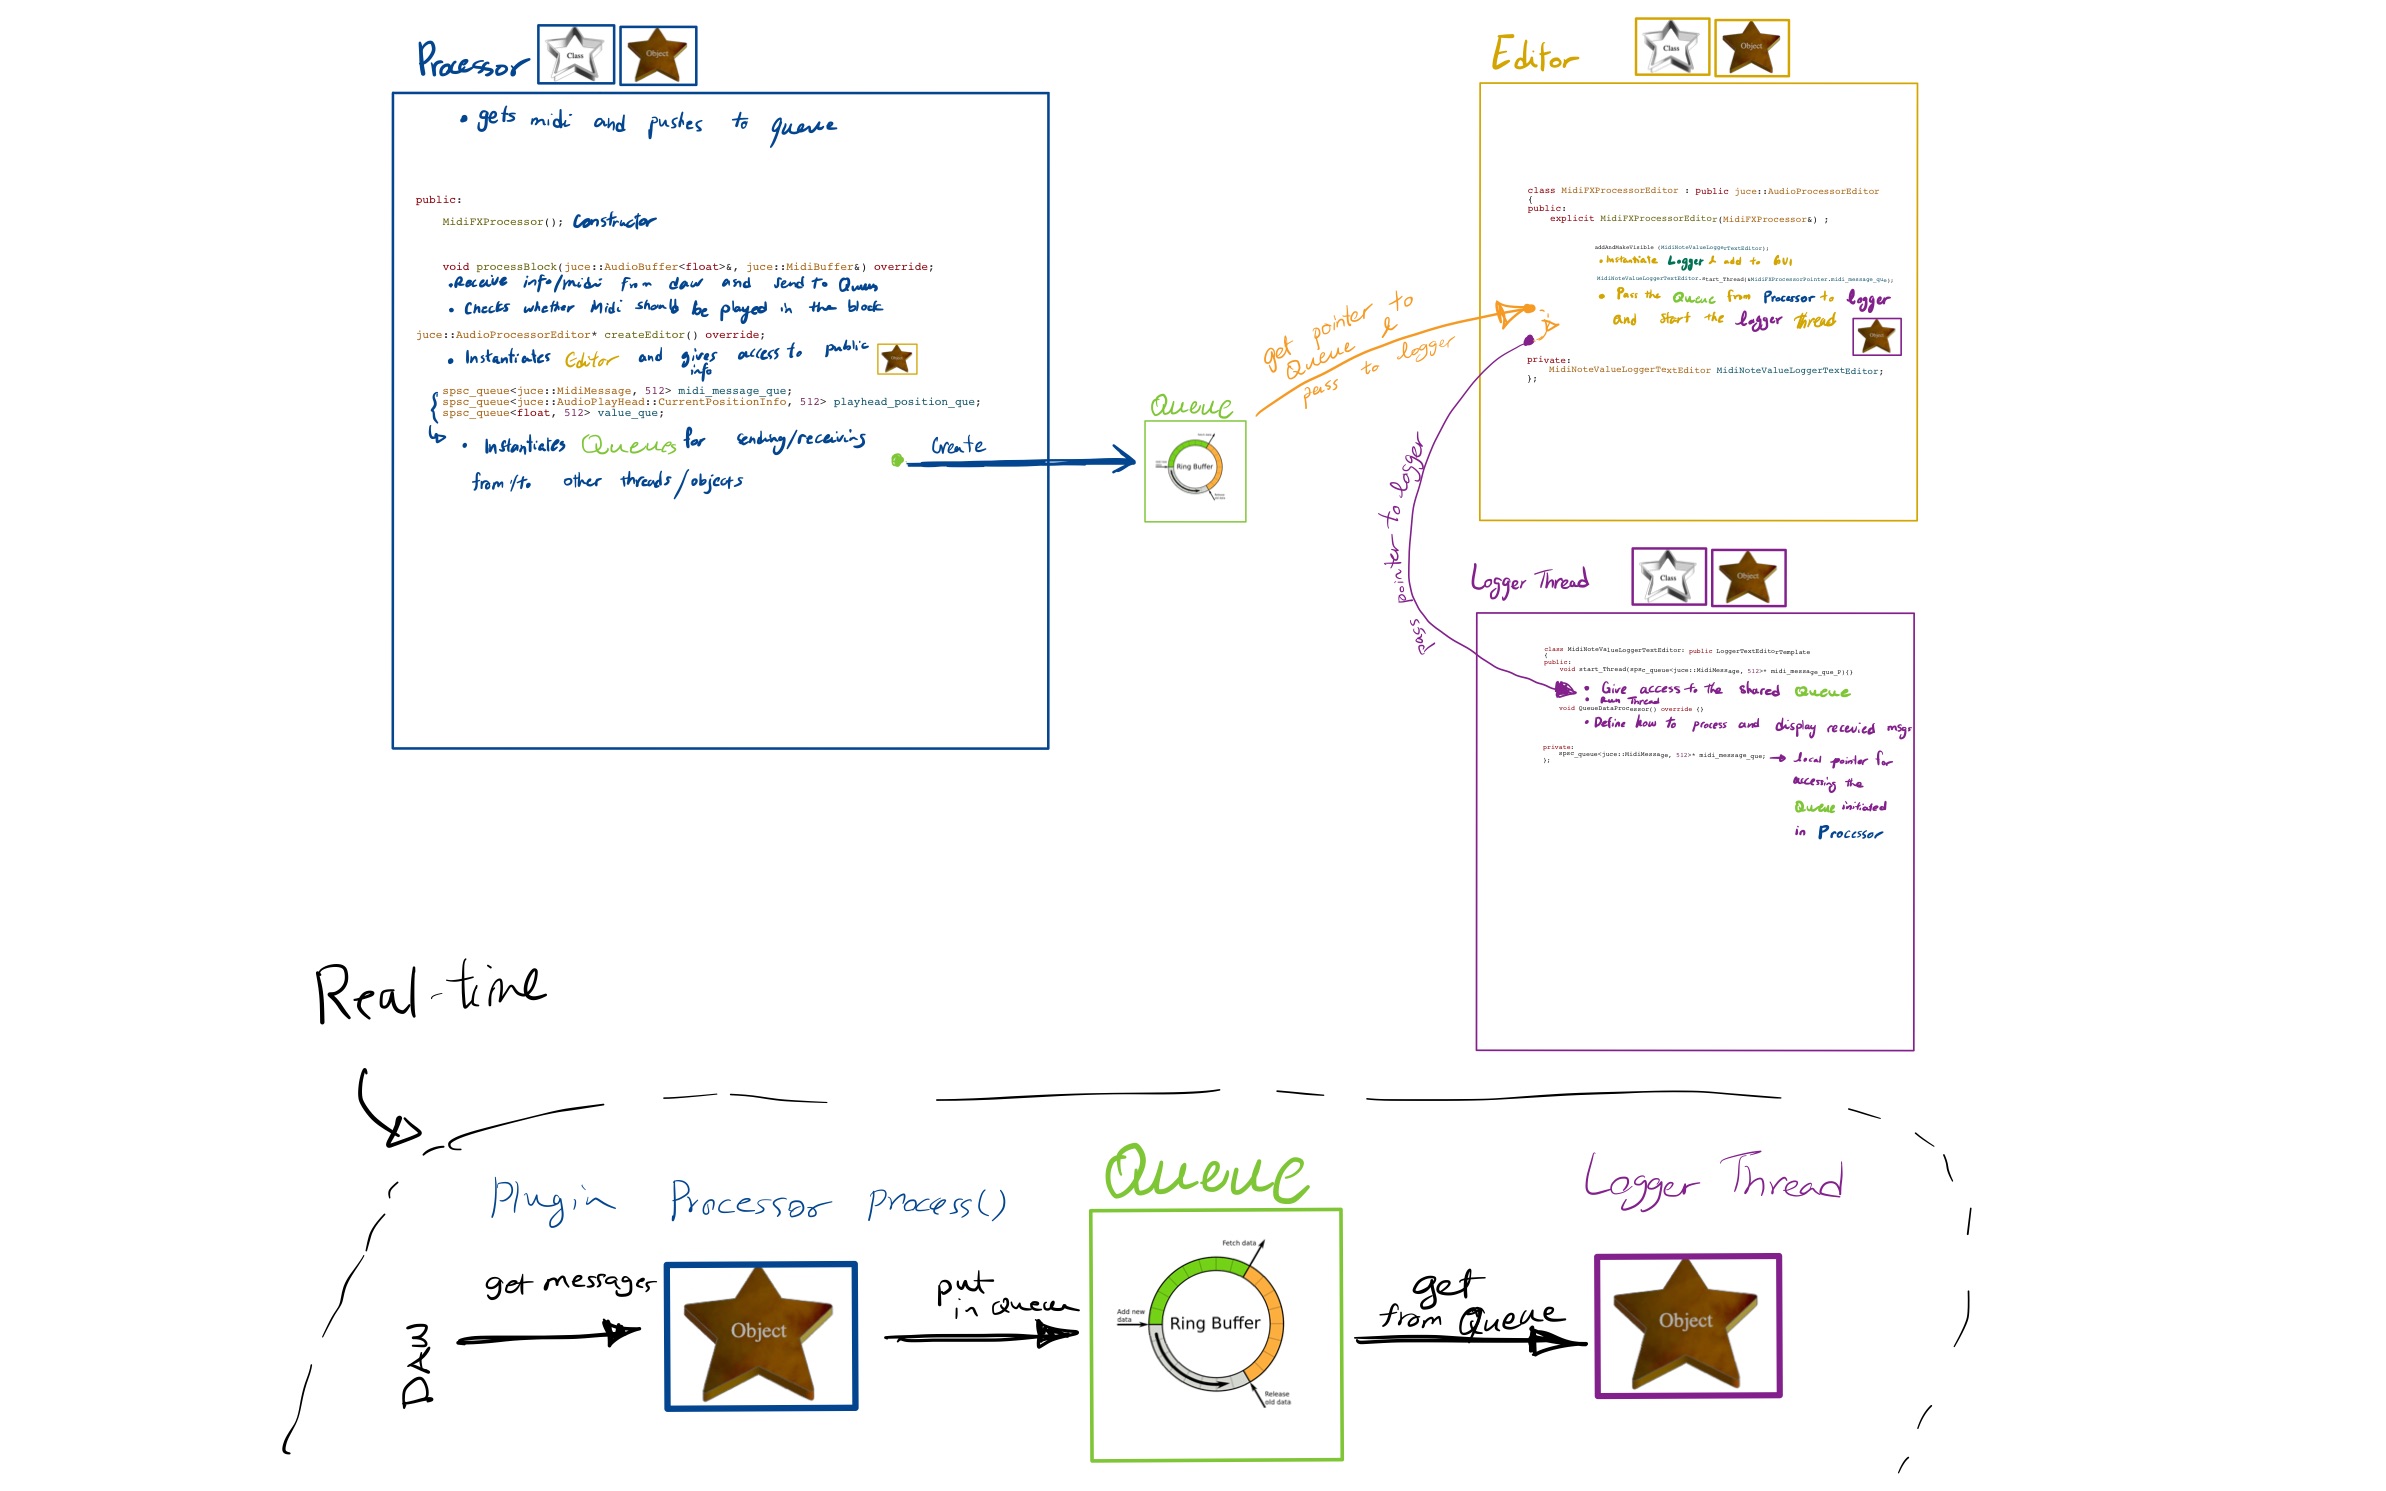 Processor
Class
Object
• gets midi and pushes to queue
public:
MidiFXProcessor(); Constructor
void processBlock(juce::AudioBuffer<float>&, juce::MidiBuffer&) override;
• Receive info/midi from daw and send to Queue
• Checks whether Midi should be played in the block
juce::AudioProcessorEditor* createEditor() override;
• Instantiates Editor and gives access to public
info
Object
spsc_queue<juce::MidiMessage, 512> midi_message_que;
spsc_queue<juce::AudioPlayHead::CurrentPositionInfo, 512> playhead_position_que;
spsc_queue<float, 512> value_que;
• Instantiates Queues for sending/receiving
from/to other threads/objects
Create
Queue
Ring Buffer
get pointer to
Queue &
pass to logger
pass pointer to logger
Editor
Class
Object
class MidiFXProcessorEditor : public juce::AudioProcessorEditor
{
public:
explicit MidiFXProcessorEditor(MidiFXProcessor&) ;
addAndMakeVisible (MidiNoteValueLoggerTextEditor);
• Instantiate Logger & add to GUI
MidiNoteValueLoggerTextEditor.start_Thread(&MidiFXProcessorPointer.midi_message_que);
• Pass the Queue from Processor to logger
and start the logger Thread
Object
private:
MidiNoteValueLoggerTextEditor MidiNoteValueLoggerTextEditor;
};
Logger Thread
Class
Object
class MidiNoteValueLoggerTextEditor: public LoggerTextEditorTemplate
{
public:
void start_Thread(spsc_queue<juce::MidiMessage, 512>* midi_message_que_P){}
• Give access to the shared Queue
• Run Thread
void QueueDataProcessor() override {}
• Define how to process and display recevied msgs
private:
spsc_queue<juce::MidiMessage, 512>* midi_message_que; → local pointer for
};
accessing the
Queue initiated
in Processor
Real-time
Plugin Processor process()
Queue
Logger Thread
DAW
get messages
Object
put
in queue
Fetch data
Add new
data
Ring Buffer
Release
old data
get
from Queue
Object